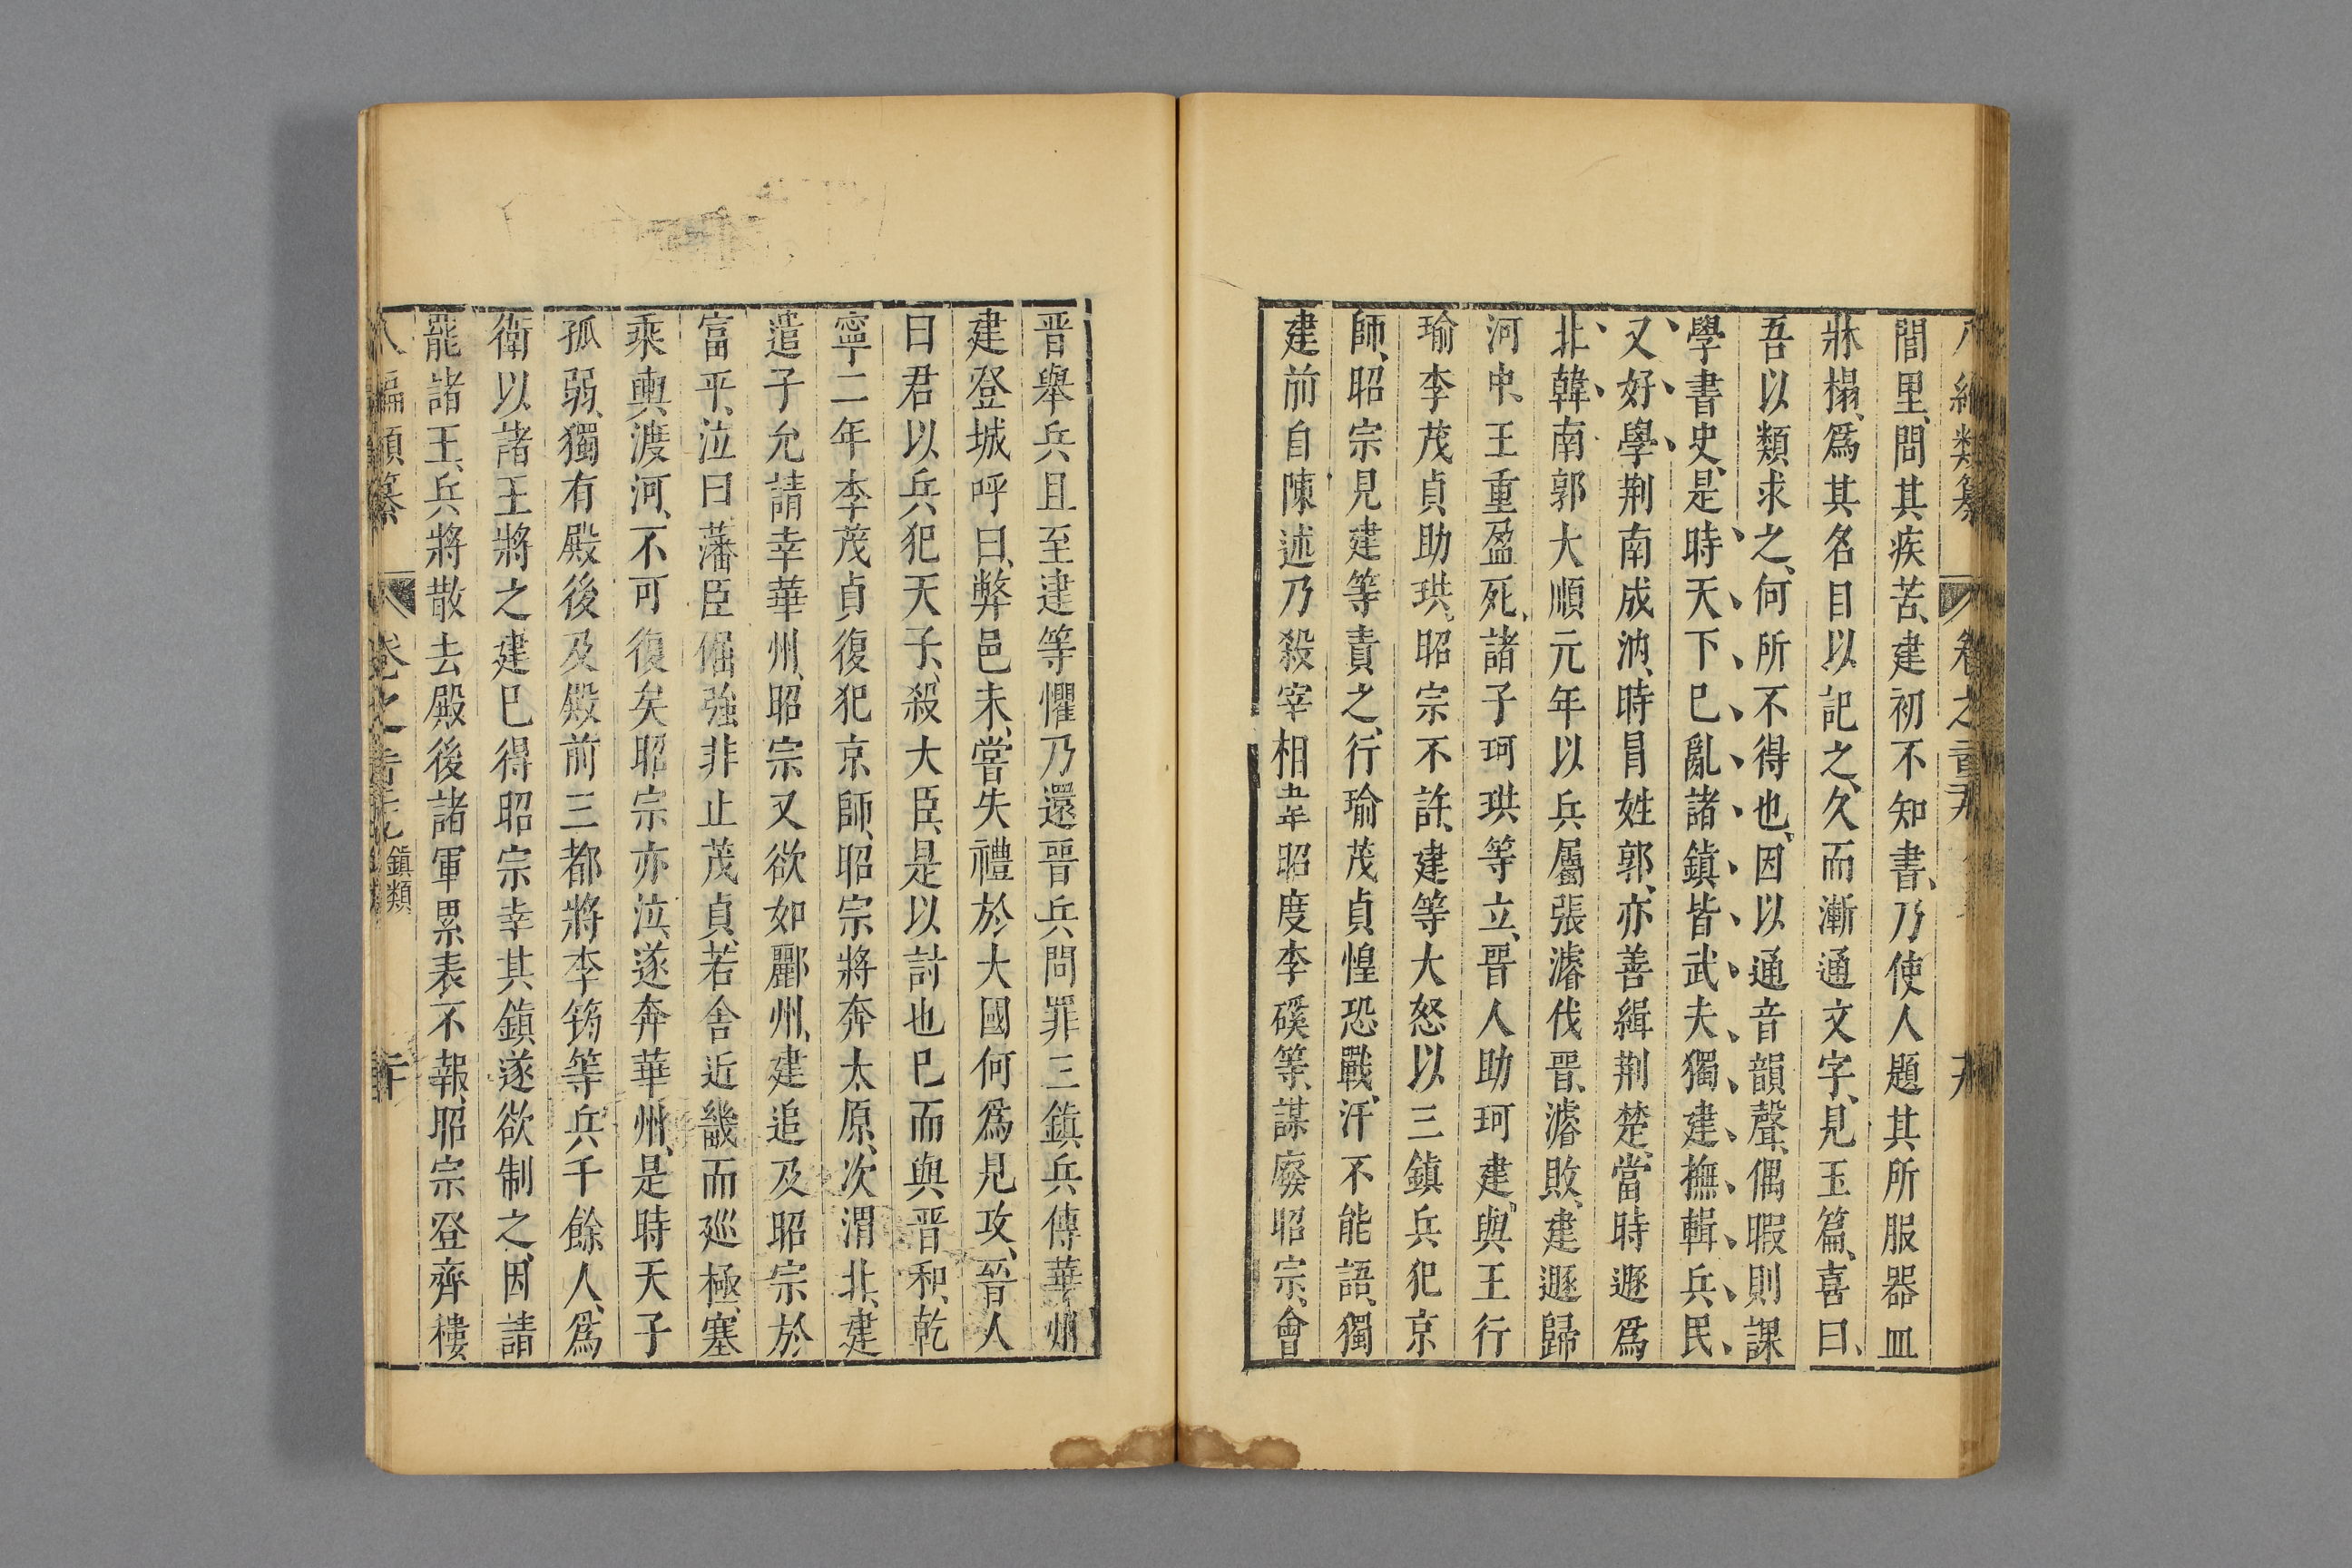 編類纂 卷之 九
閭里、問其疾苦、建初不知書、乃使人題其所服器皿
牀榻、爲其名目以記之、久而漸通文字、見玉篇、喜曰、
吾以類求之、何所不得也、因以通音韻聲、偶暇則課
學書史、是時天下已亂諸鎮皆武夫獨建撫輯兵民、
又好學荆南成汭、時冐姓郭、亦善緝荆楚、當時遯爲
北韓南郭大順元年以兵屬張濬伐晋、濬敗、建遯歸
河中、王重盈死、諸子珂珙等立、晋人助珂建、與王行
瑜李茂貞助珙、昭宗不許、建等大怒以三鎮兵犯京
師、昭宗見建等責之、行瑜茂貞惶恐戰、汗不能語、獨
建前自陳述乃殺宰相韋昭度李磎等、謀廢昭宗、會
晋舉兵且至建等懼乃還晋兵問罪三鎮兵傅華州
建登城呼曰、弊邑未嘗失禮於大國何爲見攻、晉人
曰君以兵犯天子、殺大臣、是以討也已而與晋和、乾
寧二年李茂貞復犯京師、昭宗將奔太原、次渭北、建
遣子允請幸華州、昭宗又欲如鄜州、建追及昭宗於
富平、泣曰、藩臣倔強非止茂貞、若舍近畿而廵極塞
乘輿渡河、不可復矣昭宗亦泣、遂奔華州、是時天子
孤弱、獨有殿後及殿前三都將李筠等兵千餘人、爲
衛以諸王將之建已得昭宗幸其鎮遂欲制之、因請
罷諸王、兵將散去殿後諸軍累表不報、昭宗登齊樓
編類纂 卷之 鎮類